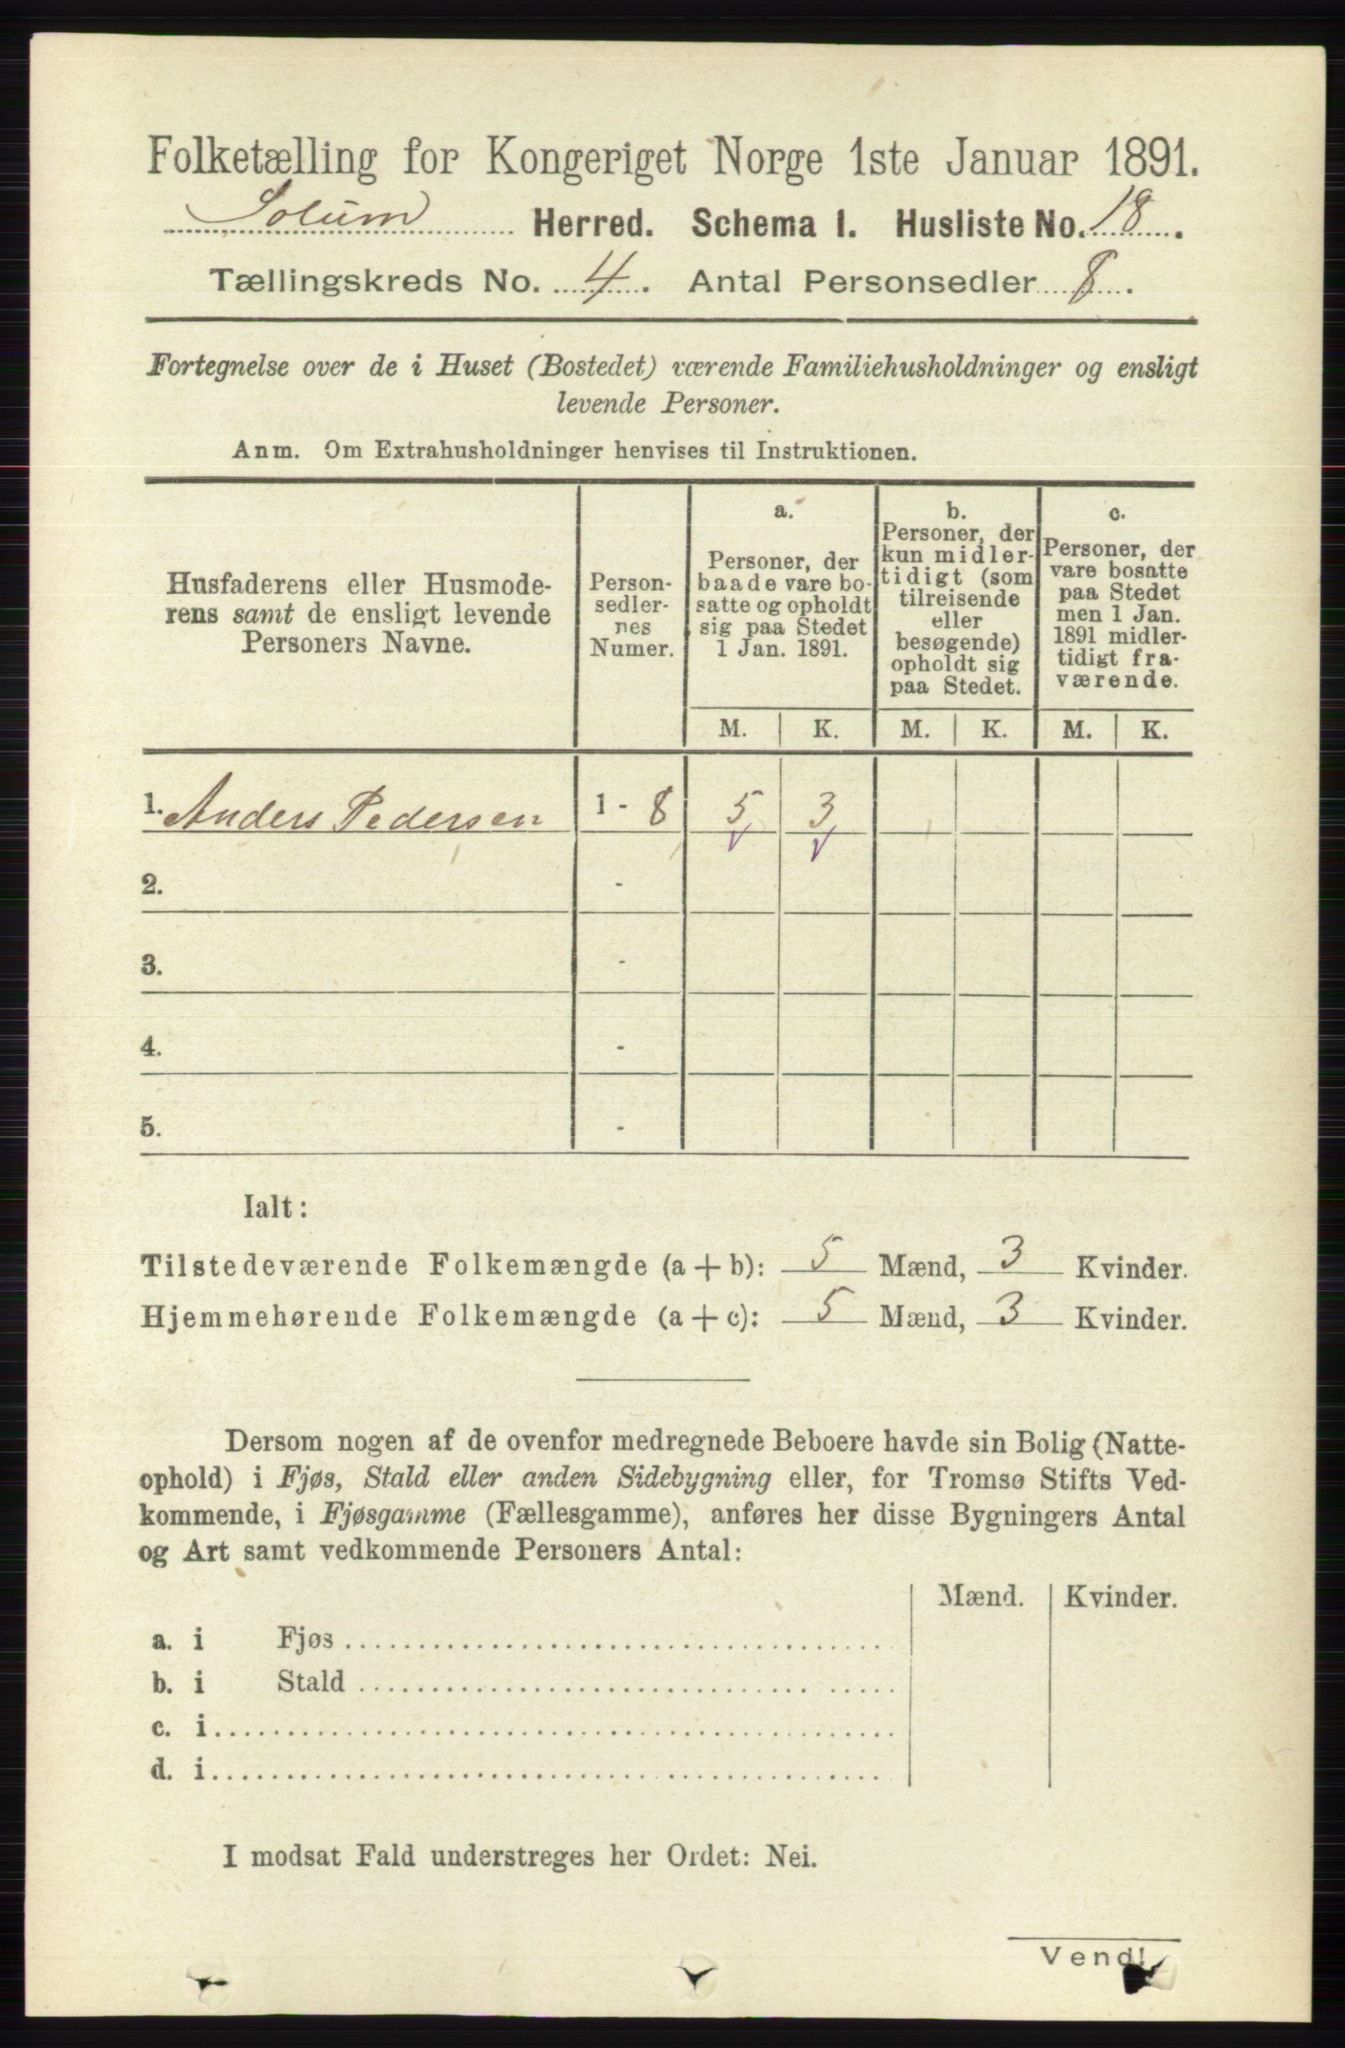 Folketælling for Kongeriget Norge 1ste Januar 1891.
Solum Herred. Schema I. Husliste No. 18.
Tællingskreds No. 4. Antal Personsedler 8.
Fortegnelse over de i Huset (Bostedet) værende Familiehusholdninger og ensligt
levende Personer.
Anm. Om Extrahusholdninger henvises til Instruktionen.
Husfaderens eller Husmode-
rens samt de ensligt levende
Personers Navne.
Person-
sedler-
nes
Numer.
a.
Personer, der
baade vare bo-
satte og opholdt
sig paa Stedet
1 Jan. 1891.
b.
Personer, der
kun midler-
tidigt (som
tilreisende
eller
besøgende)
opholdt sig
paa Stedet.
c.
Personer, der
vare bosatte
paa Stedet
men 1 Jan.
1891 midler-
tidigt fra-
værende.
M. K. M. K. M. K.
1. Anders Pedersen 1 - 8 5 3
2. -
3. -
4. -
5. -
Ialt:
Tilstedeværende Folkemængde (a + b): 5 Mænd, 3 Kvinder.
Hjemmehørende Folkemængde (a + c): 5 Mænd, 3 Kvinder.
Dersom nogen af de ovenfor medregnede Beboere havde sin Bolig (Natte-
ophold) i Fjøs, Stald eller anden Sidebygning eller, for Tromsø Stifts Ved-
kommende, i Fjøsgamme (Fællesgamme), anføres her disse Bygningers Antal
og Art samt vedkommende Personers Antal:
Mænd. Kvinder.
a. i Fjøs
b. i Stald
c. i
d. i
I modsat Fald understreges her Ordet: Nei.
Vend!